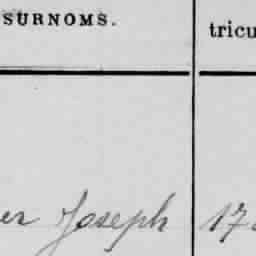 SURNOMS. tricu
er Joseph 17